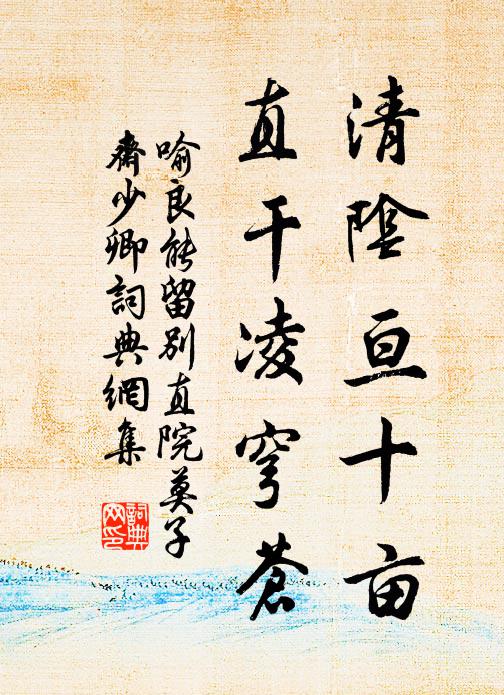 清陰亘十亩
直干凌穹蒼
喻良能留別直院莫子
齋少卿詞典網集
詞典网印